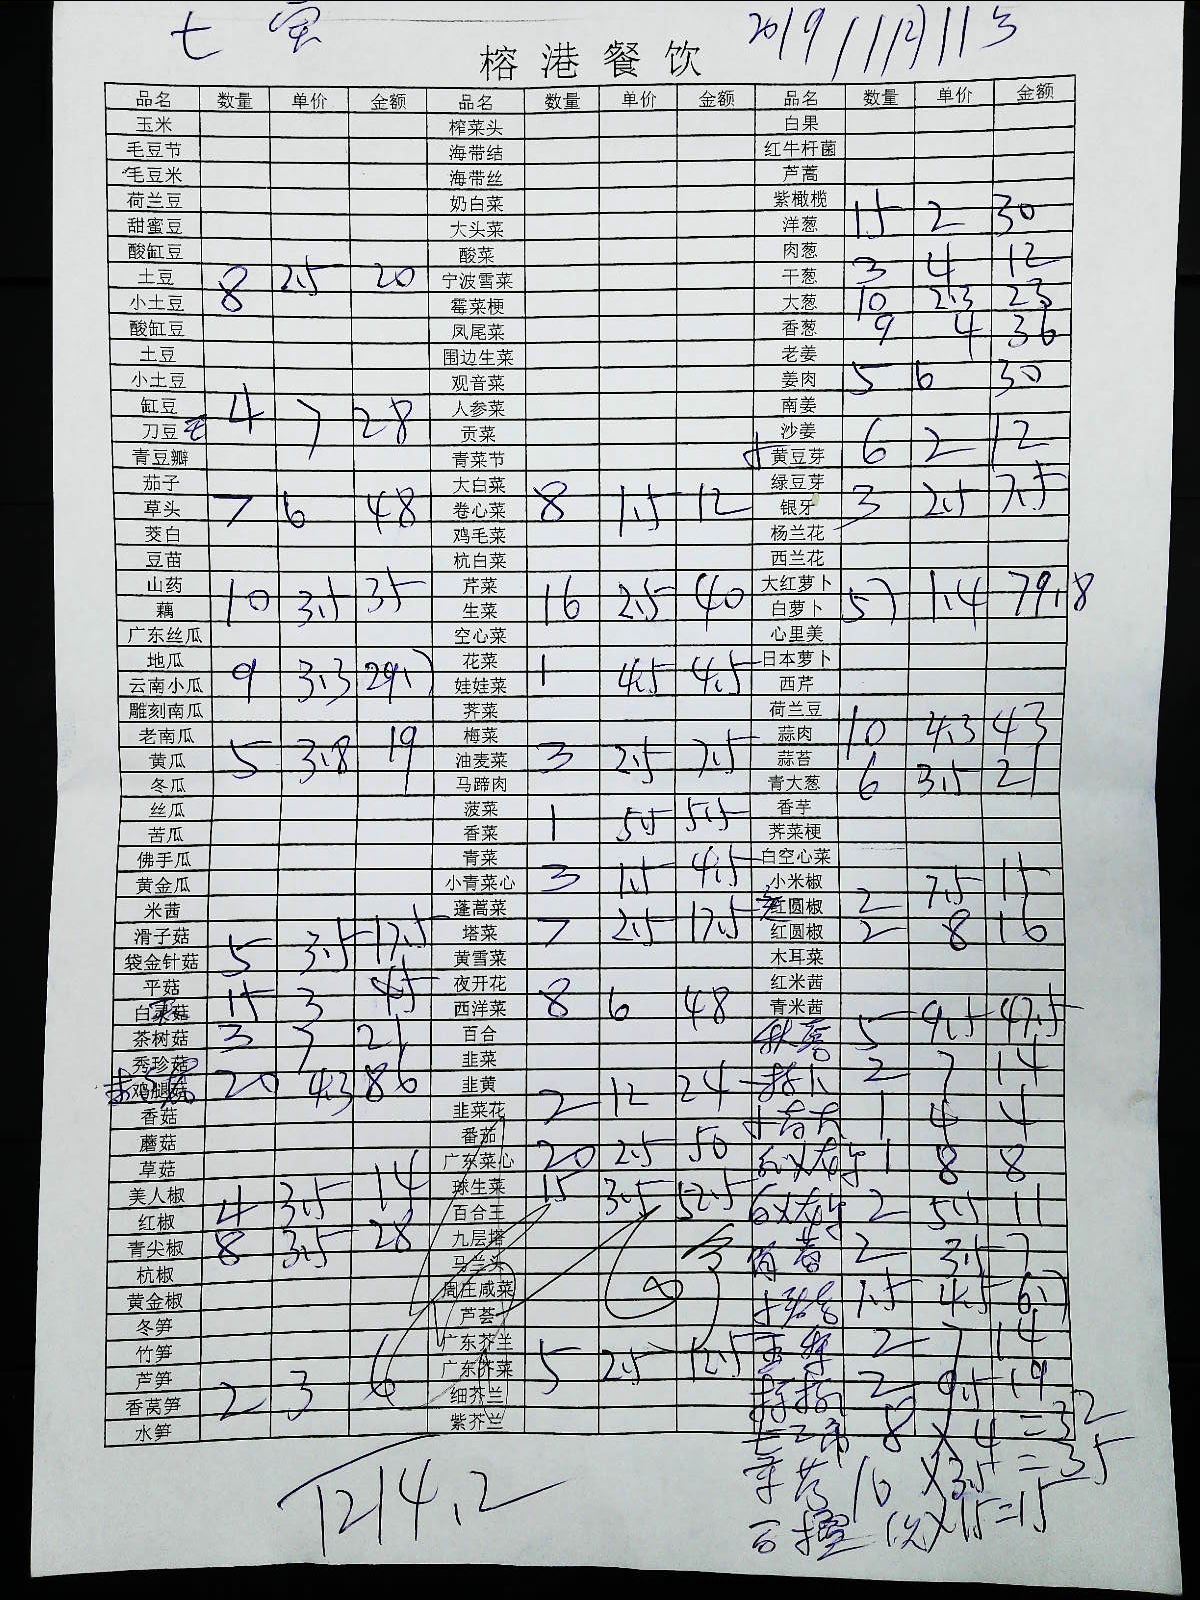 七宝 2019/11月11号
榕港餐饮
品名 数量 单价 金额 品名 数量 单价 金额 品名 数量 单价 金额
玉米 榨菜头 白果
毛豆节 海带结 红牛杆菌
毛豆米 海带丝 芦蒿
荷兰豆 奶白菜 紫橄榄
甜蜜豆 大头菜 洋葱 15 2 30
酸缸豆 酸菜 肉葱
土豆 8 2.5 20 宁波雪菜 干葱 3 4 12
小土豆 霉菜梗 大葱 10 2.3 23
酸缸豆 凤尾菜 香葱 9 4 36
土豆 围边生菜 老姜
小土豆 观音菜 姜肉 5 6 30
缸豆 4 7 28 人参菜 南姜
刀豆 贡菜 沙姜
青豆瓣 青菜节 黄豆芽 6 2 12
茄子 大白菜 绿豆芽
草头 7 6 48 卷心菜 8 1.5 12 银牙 3 2.5 7.5
茭白 鸡毛菜 杨兰花
豆苗 杭白菜 西兰花
山药 芹菜 大红萝卜
藕 10 3.5 35 生菜 16 2.5 40 白萝卜 57 1.4 79.8
广东丝瓜 空心菜 心里美
地瓜 花菜 日本萝卜
云南小瓜 9 3.3 29.7 娃娃菜 1 4.5 4.5 西芹
雕刻南瓜 荠菜 荷兰豆
老南瓜 梅菜 蒜肉 10 4.3 43
黄瓜 5 3.8 19 油麦菜 3 2.5 7.5 蒜苔
冬瓜 马蹄肉 青大葱 6 3.5 21
丝瓜 菠菜 香芋
苦瓜 香菜 1 5.5 5.5 荠菜梗
佛手瓜 青菜 白空心菜
黄金瓜 小青菜心 3 1.5 4.5 小米椒
米茜 蓬蒿菜 红圆椒 2 7.5 15
滑子菇 塔菜 7 2.5 17.5 红圆椒 2 8 16
袋金针菇 5 3.5 17.5 黄雪菜 木耳菜
平菇 夜开花 红米茜
白灵菇 15 3 45 西洋菜 8 6 48 青米茜
茶树菇 3 7 21 百合 秋葵 5 9.5 47.5
秀珍菇 韭菜 2 7 14
鸡腿菇 20 4.3 86 韭黄
香菇 韭菜花 2 12 24 1 4 4
蘑菇 番茄
草菇 广东菜心 20 2.5 50 1 8 8
美人椒 4 3.5 14 球生菜 15 3.5 52.5
红椒 百合王 2 5.5 11
青尖椒 8 3.5 28 九层塔
杭椒 马兰头 2 3.5 7
黄金椒 周庄咸菜 1.5 4.5 6.7
冬笋 芦荟
竹笋 广东芥兰 2 7 14
芦笋 广东芥菜 5 2.5 12.5
香莴笋 2 3 6 细芥兰 2 9.5 19
水笋 紫芥兰
8×4=32
10×3.5=35
1×15=15
1214.2